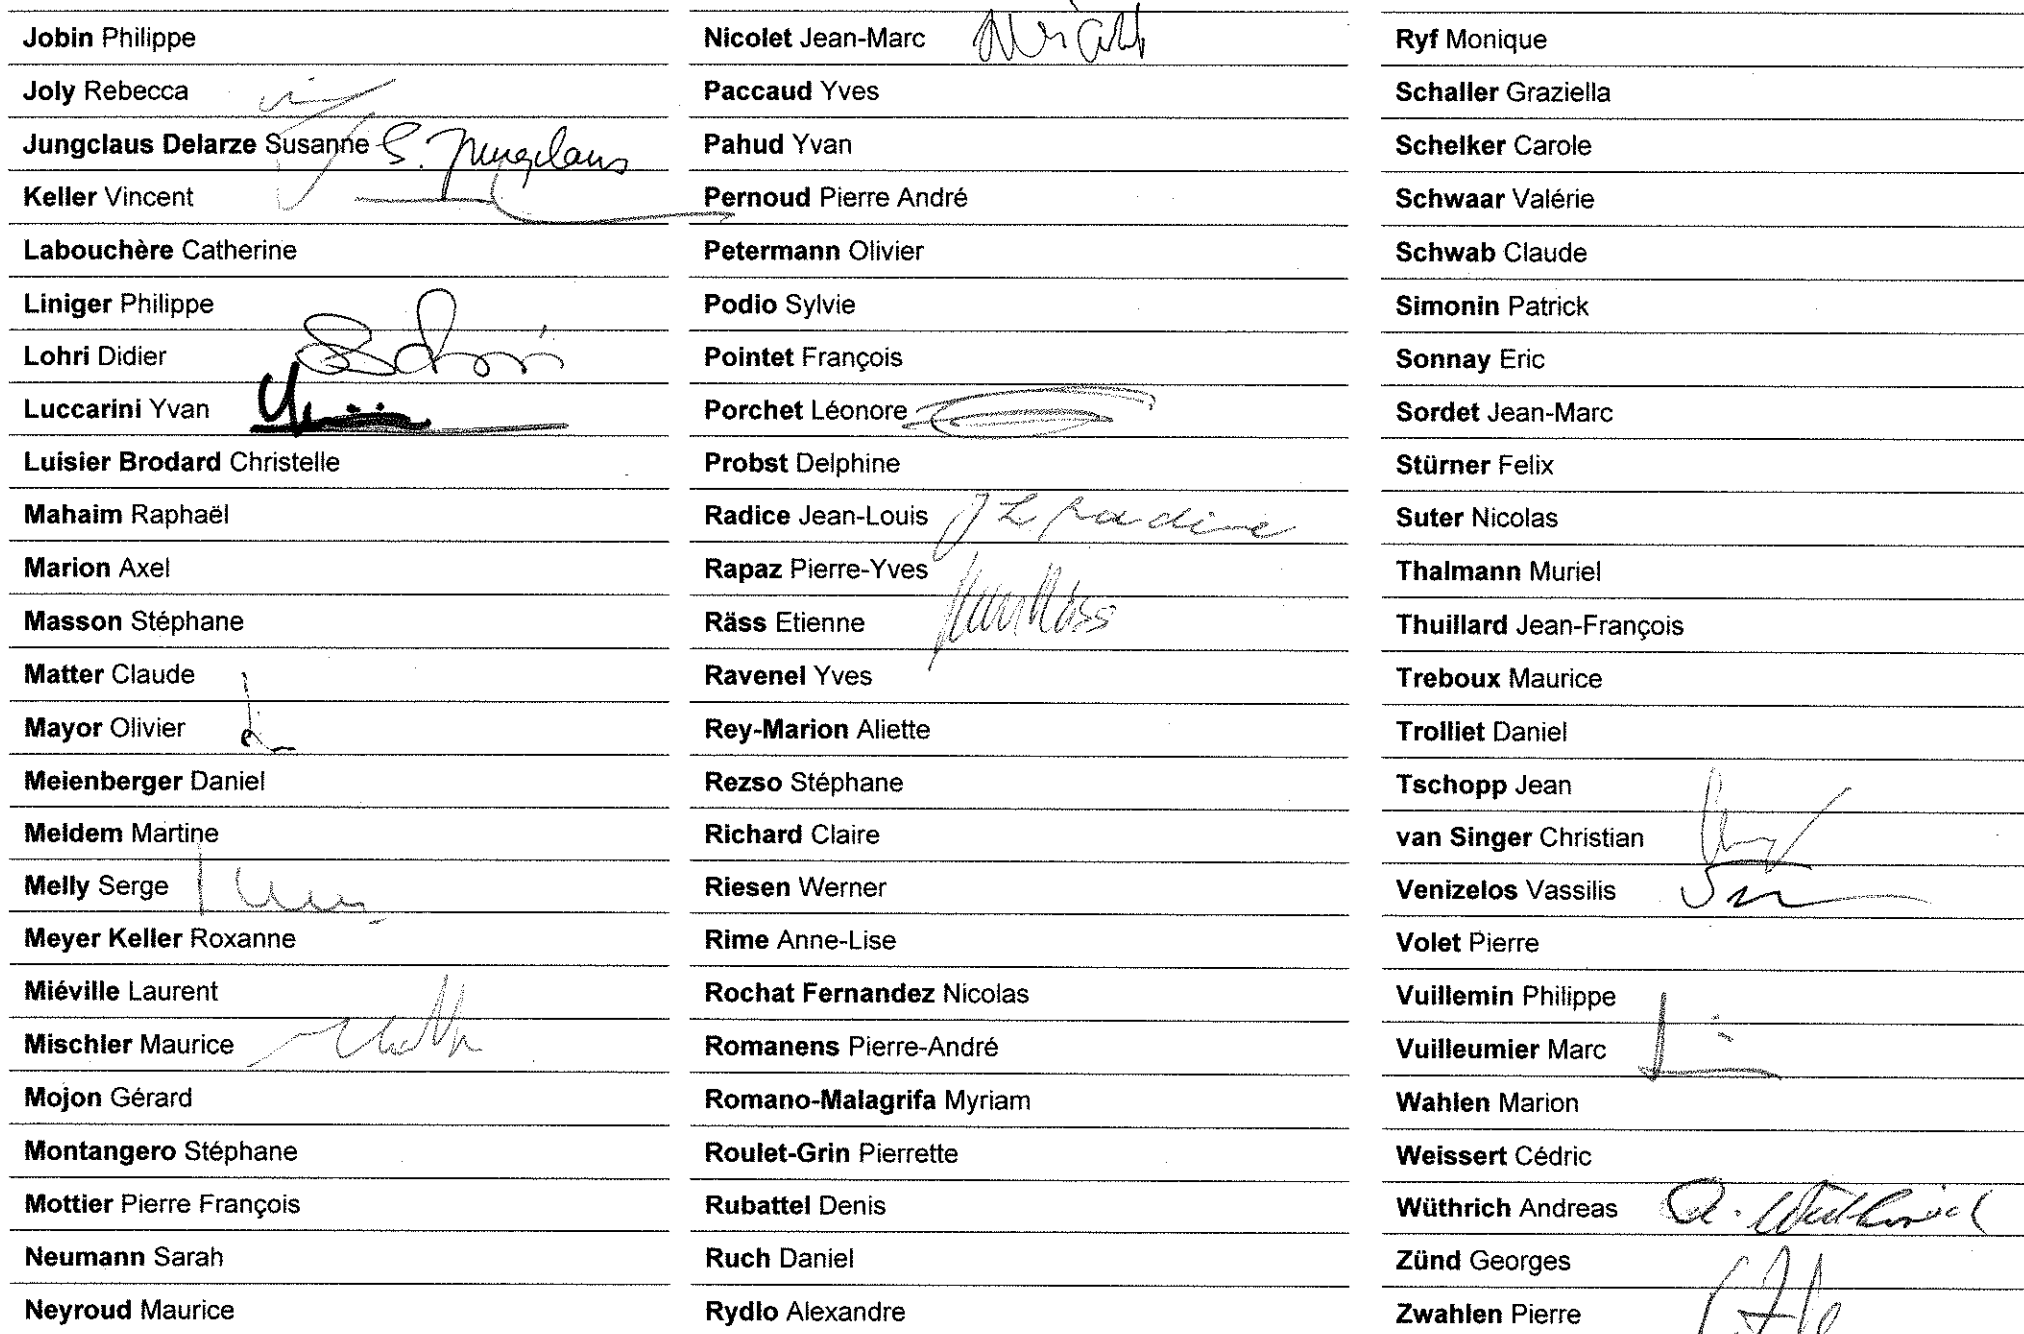 Jobin Philippe
Joly Rebecca
Jungclaus Delarze Susanne S. Jungclaus
Keller Vincent
Labouchère Catherine
Liniger Philippe
Lohri Didier
Luccarini Yvan
Luisier Brodard Christelle
Mahaim Raphaël
Marion Axel
Masson Stéphane
Matter Claude
Mayor Olivier
Meienberger Daniel
Meldem Martine
Melly Serge
Meyer Keller Roxanne
Miéville Laurent
Mischler Maurice
Mojon Gérard
Montangero Stéphane
Mottier Pierre François
Neumann Sarah
Neyroud Maurice
Nicolet Jean-Marc
Paccaud Yves
Pahud Yvan
Pernoud Pierre André
Petermann Olivier
Podio Sylvie
Pointet François
Porchet Léonore
Probst Delphine
Radice Jean-Louis J L Radice
Rapaz Pierre-Yves
Räss Etienne
Ravenel Yves
Rey-Marion Aliette
Rezso Stéphane
Richard Claire
Riesen Werner
Rime Anne-Lise
Rochat Fernandez Nicolas
Romanens Pierre-André
Romano-Malagrifa Myriam
Roulet-Grin Pierrette
Rubattel Denis
Ruch Daniel
Rydlo Alexandre
Ryf Monique
Schaller Graziella
Schelker Carole
Schwaar Valérie
Schwab Claude
Simonin Patrick
Sonnay Eric
Sordet Jean-Marc
Stürner Felix
Suter Nicolas
Thalmann Muriel
Thuillard Jean-François
Treboux Maurice
Trolliet Daniel
Tschopp Jean
van Singer Christian
Venizelos Vassilis
Volet Pierre
Vuillemin Philippe
Vuilleumier Marc
Wahlen Marion
Weissert Cédric
Wüthrich Andreas A. Wüthrich
Zünd Georges
Zwahlen Pierre